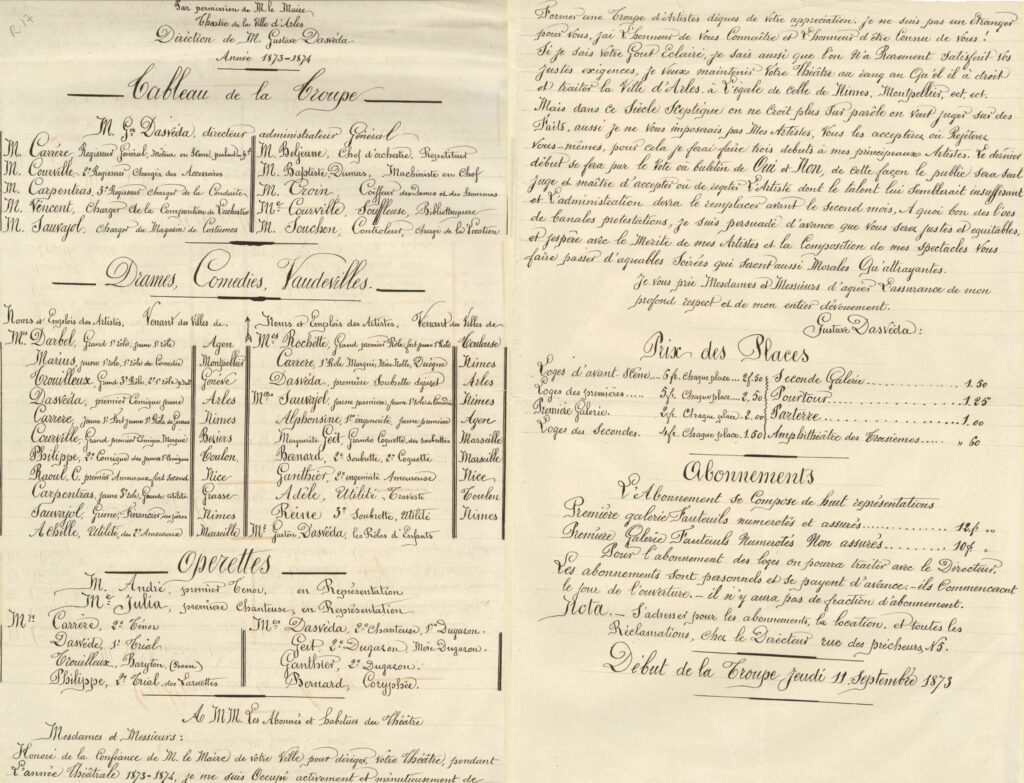 R 17
Par permission de M. le Maire
Théatre de la Ville d'Arles
Direction de M. Gustave Dasvéda
Année 1873-1874
Tableau de la Troupe
M. Gve Dasvéda, directeur administrateur Général
M. Carrére, Regisseur Général, Metteur en Scène, parlant au
M. Courville, 2e Regisseur Chargés des Accessoires
M. Carpentras, 3e Regisseur Chargét de la Conduite
M. Vencent, Charger de la Composition de
M. Sauvajol, Charger du Magasin de Costumes
M. Beljeune, Chef d'orchestre, Repetiteur
M. Baptiste Dumas, Machiniste en Chef
M. Troin, Coiffeur des Dames et des Hommes
Me Courville, Souffleuse, Bibliothequere
M. Souchon, Controleur, Chargé de la Location
Drames, Comedies, Vaudevilles.
Noms et Emplois des Artistes, Venant des Villes de.
Mrs Darbel, Grand 1er rôle, fort 1er rôle Agen
Marius, jeune 1er rôle, 1er rôle de Comedie Montpellier
Trouilleux, Grand 3e Rôle, 2e rôle Genéve
Dasvéda, premier Comique Jeune Arles
Carrére, jeune 1er Fort jeune 1er Rôle de Nimes
Courville, Grand premier Comique Marqué Besiers
Philippe, 2e Comique des jeunes 1er Comiques Toulon
Raoul. C, premier Amoureux, fort Second Nice
Carpentras, jeune 3e rôle, Grande utilité Grasse
Sauvajol, Grime, Financier Nimes
Achille, Utilité, des 2e Amoureux Marseille
Noms et Emplois des Artistes, Venant des Villes de
Mes Rochette, Grand premier Rôle, fort jeune 1er Rôle Toulouse
Carrere, 1er Rôle Marqué, Mère Noble, Duégne Nimes
Dasvéda, première Soubrette dejazet Arles
Mmes Sauvajol, Jeune première, jeune 1er Rôle de Nimes
Alphonsine, 1re ingenuité, jeune première Agen
Marguerite Geit, Grande Coquette des Soubrettes Marseille
Bernard, 2e Soubrette, 2e Coquette Marseille
Ganthier, 2e ingenuité Amoureuse Nice
Adèle, Utilité Travestie Toulon
Reine 3e Soubrette, Utilité Nimes
Me Gustave Dasvéda, les Rôles d'Enfants
Operettes
M. André, premier Tenor, en Représentation
Me Julia, première Chanteuse, en Représentation
Mrs Carrére, 2e Ténor
Dasvéde, 1er Trial
Trouilleux, Baryton, (Basse)
Philippe, 2e Trial, des Laruettes
Mes Dasvéda, 2e Chanteuse, 1re Dugazon.
Geit, 2e Dugazon, Mère Dugazon.
Ganthier, 2e Dugazon.
Bernard, Coryphée.
A MM. Les Abonnés et habitués du Théâtre
Mesdames et Messieurs:
Honoré de la Confiance de M. le Maire de votre Ville pour diriger, votre Théâtre, pendant
L'année Théâtrale 1873-1874, je me suis Occupé activement et minutieusement de
Former une Troupe d'Artistes dignes de Votre appreciation. je ne suis pas un Etranger
pour Vous, j'ai L'honneur de Vous Connaître et L'honneur d'être Connu de Vous!
Si je sais Votre Gout Eclairé, je sais aussi que l'on N'a Rarement Satisfait vos
justes exigences, je Veux maintenir Votre Théâtre au rang au Qu'el il à droit
et traiter la Ville d'Arles, à L'égale de Celle de Nimes, Montpellier, ect. ect.
Mais dans ce Siècle Sceptique on ne Croit plus Sur parôle on Veut juger sur des
Faits, aussi je ne Vous imposerais pas Mes Artistes, Vous les accepterez où Rejeterez
Vous-mêmes, pour cela je ferai faire trois débuts à mes principeaux Artistes. Le dernier
début se fera par le Vôte ou buletin de Oui et Non, de cette façon le public Sera Seul
juge et maître d'accepter où de rejeter L'Artiste dont le talent lui Semblerait insuffisant
et L'administration devra le remplacer avant le Second mois. A quoi bon des lors
de banales protestations, je suis persuadé d'avance que Vous Serez justes et equitables,
et j'espère avec le Merite de mes Artistes et la Composition de mes Spectacles Vous
faire passer d'agreables Soirées qui Seront aussi Morales Qu'attrayantes.
Je Vous prie Mesdames et Messieurs d'agréer L'assurance de mon
profond respect et de mon entier dévouement.
Gustave Dasvéda:
Prix des Places
Loges d'avant Scène.... 5 f. Chaque place... 2f.50
Loges des premières.... 3 f. Chaque place... 2.50
Première Galerie. 2 f. Chaque place. 2.00
Loges des Secondes. 4 f. Chaque place. 1.50
Seconde Galerie............ 1.50
Pourtour............ 1.25
Parterre............ 1.00
Amphithéâtre des Troisiemes.... " 60
Abonnements
L'Abonnement se Compose de huit représentations
Première galerie Fauteuils numerotés et assurés............ 12f. "
Première Galerie Fauteuils Numerotés Non assurés............ 10f. "
Pour l'abonnement des loges on pourra traiter avec le Directeur,
Les abonnements sont personnels et se payent d'avance.- ils Commenceront
le jour de l'ouverture.- il n'y aura pas de fraction d'abonnement.
Nota.- S'adresser pour les abonnements, la location. et toutes les
Réclamations, chez le Directeur rue des prêcheurs, N5.
Début de la Troupe Jeudi 11 Septembre 1873